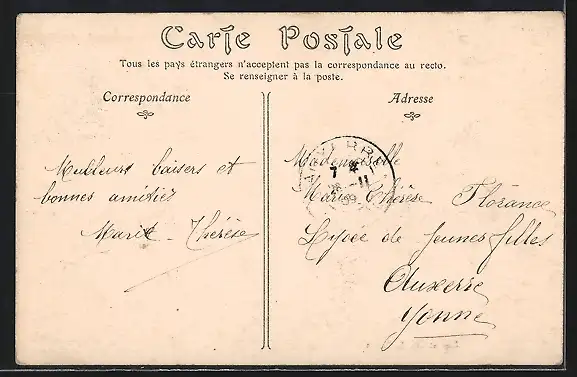 Carte Postale
Tous les pays étrangers n'acceptent pas la correspondance au recto.
Se renseigner à la poste.
Correspondance
Meilleurs baisers et
bonnes amitiés
Marie-Thérèse
Adresse
AUXERRE
7 *
-11
09
Mademoiselle
Marie Thérèse Florance
Lycée de Jeunes filles
Auxerre
Yonne